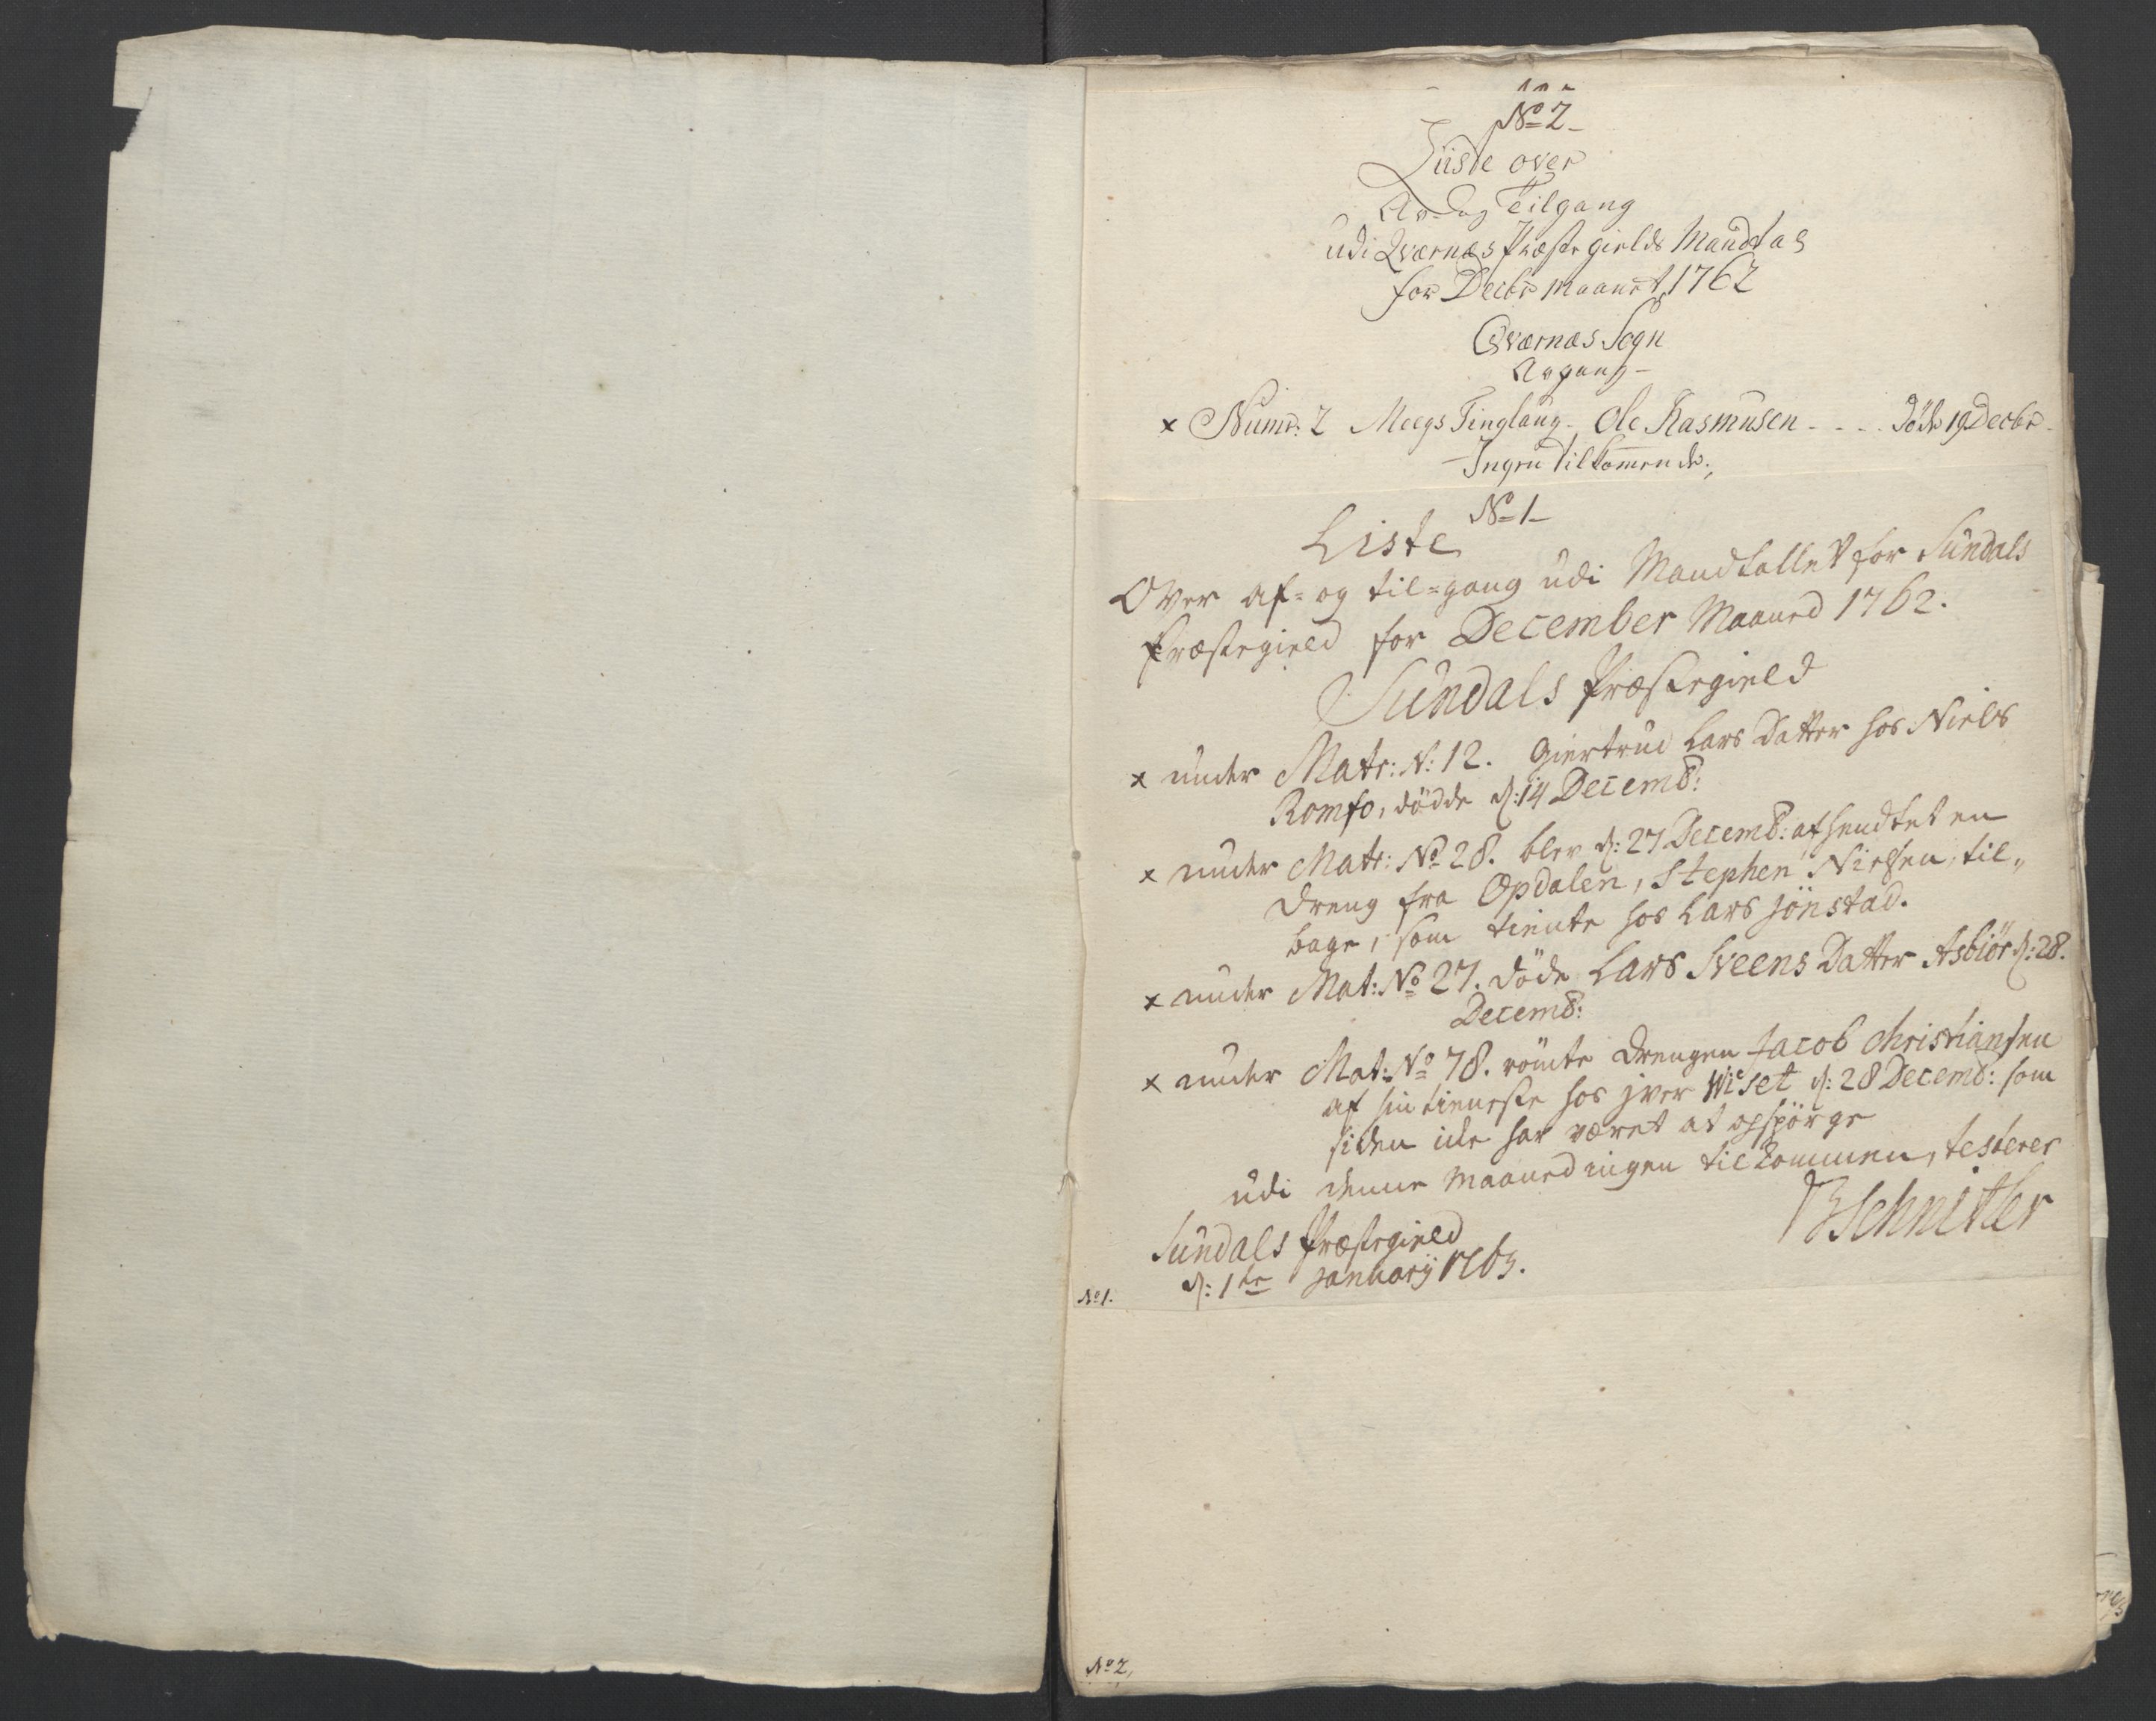 No 2
Liiste over
Av- og Tilgang
udi Qværnæs Præstegields Mandtal
for Decbr Maanet 1762
Qværnæs Sogn
Avgang
x Numr: 2 Meegs Tinglaug - Ole Rasmusen - - - - döde 19 Decbr -
Ingen Tilkommende;
No 1
Liste
Over af- og til-gang udi Mandtallet for Sundals
Præstegield for December Maaned 1762.
Sundals Præstegield
x under Matr: N: 12. Giertrud Lars Datter hos Niels
Romfo, dödde d: 14 Decemb:
x under Matr: No 28. blev d: 27 Decemb: afsendtet en
dreng fra Opdalen, Stephen Nielsen, til„
bage, som tiente hos Lars jönstad.
x under Mat: No 27. döde Lars Sveens Datter Asbiör d: 28.
Decemb:
x under Mat: No 78. römte drengen Jacob Christiansen
af sin tieneste hos jver Wiset d: 28 Decemb: som
siden icke har været at opspörge
udi denne Maaned ingen tilkommen, testerer
Sundals Præstegield
BSchnitler
d: 1te januarij 1763.
No 1.
No 2,